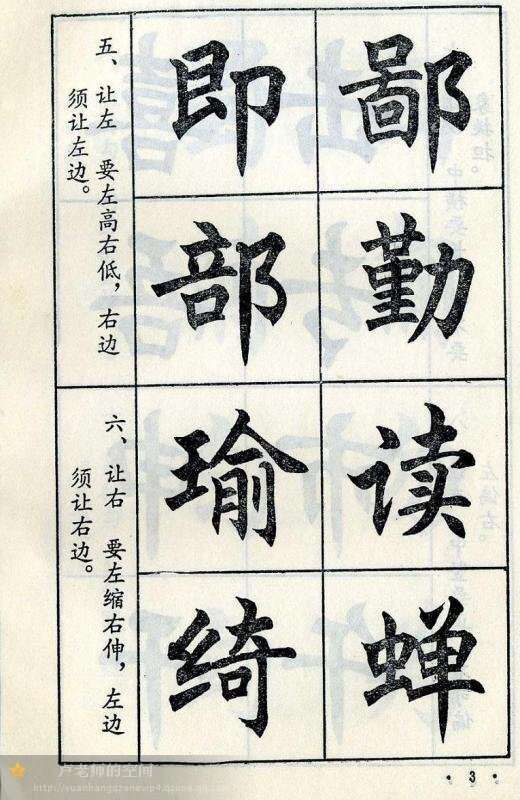 鄙
勤
即
部
五、让左 要左高右低，右边
须让左边。
读
蝉
瑜
绮
六、让右 要左缩右伸，左边
须让右边。
·3·
卢老师的空间